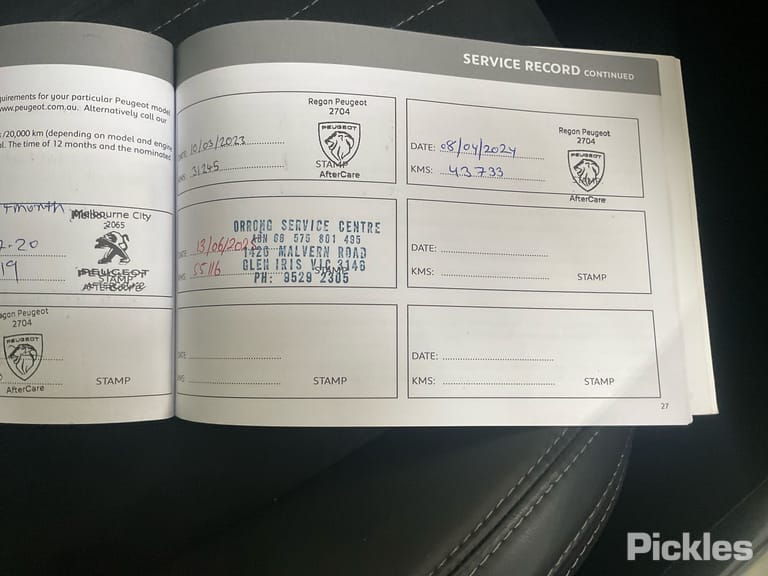 quirements for your particular Peugeot model
www.peugeot.com.au. Alternatively call our
/20,000 km (depending on model and engine
The time of 12 months and the nominated
month
Melbourne City
2065
PEUGEOT
STAMP
19
Regan Peugeot
2704
PEUGEOT
AfterCare
STAMP
SERVICE RECORD CONTINUED
Regan Peugeot
2704
PEUGEOT
DATE: 10/03/2023
KMS: 31245
STAMP
AfterCare
Regan Peugeot
2704
PEUGEOT
DATE: 08/04/2024
KMS: 43733
STAMP
AfterCare
ORRONG SERVICE CENTRE
ABN 68 575 801 495
DATE 13/06/2025
1426 MALVERN ROAD
KMS: 55116
GLEN IRIS VIC 3146
STAMP
PH: 9529 2305
DATE:
KMS:
STAMP
DATE
KMS:
STAMP
DATE:
KMS:
STAMP
27
Pickles